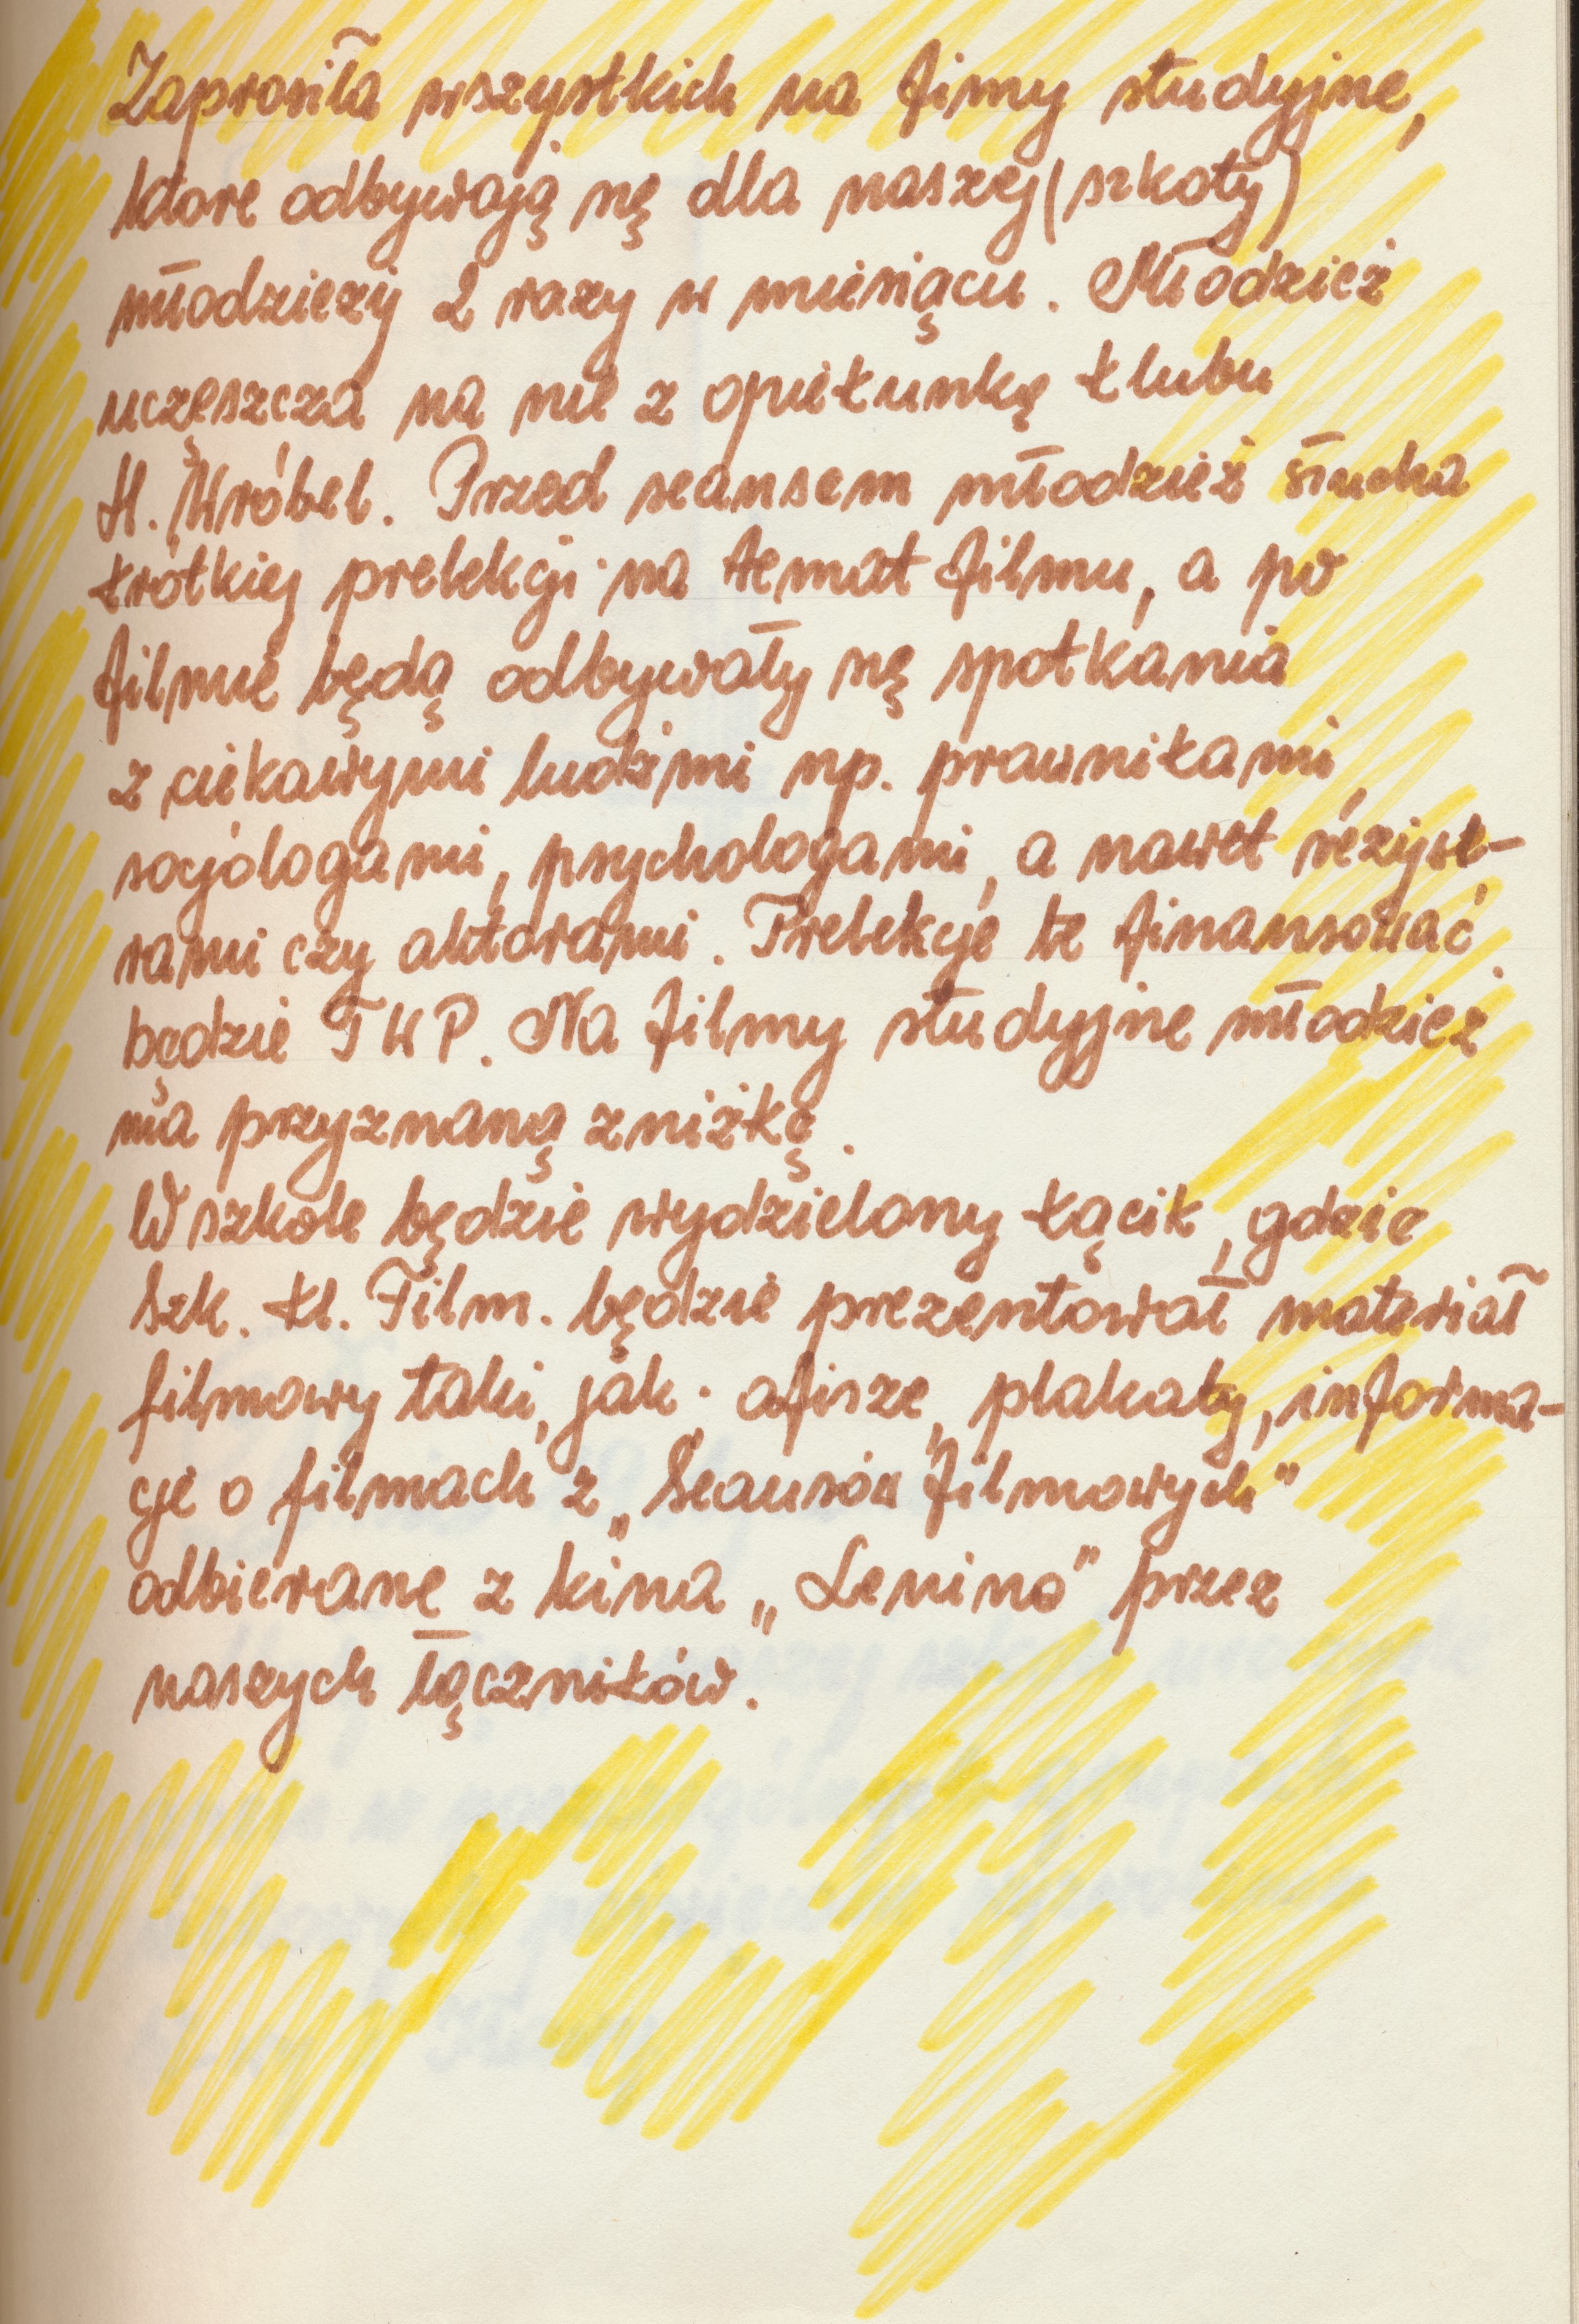 Zaprosiła wszystkich na fimy studyjne,
ktore odbywają się dla naszej (szkoły)
młodzieży 2 razy w miesiącu. Młodzież
uczęszcza na nie z opiekunkę klubu
H. Wróbel. Przed seansem młodzież słucha
krótkiej prelekcji na temat filmu, a po
filmie będą odbywały się spotkania
z ciekawymi ludźmi np. prawnikami
socjologami, psychologami, a nawet reżyse-
rami czy aktorami. Prelekcje te finansować
będzie TWP. Na filmy studyjne młodzież
ma przyznaną zniżkę.
W szkole będzie wydzielony kącik, gdzie
Szk. Kl. Film. będzie prezentował materiał
filmowy taki, jak: afisze, plakaty, informa-
cje o filmach z „Seansów filmowych"
odbierane z kina „Lenino" przez
naszych łączników.